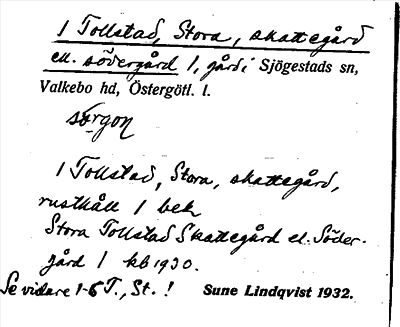 1 Tollstad, Stora, skattegård
el. södergård 1, gård i Sjögestads sn,
Valkebo hd, Östergötl. l.
sörgọn
1 Tollstad, Stora, skattegård,
rusthåll 1 bek
Stora Tollstad Skattegård el. Söder-
gård 1 kb 1930.
Se vidare 1-6 T., St. ! Sune Lindqvist 1932.